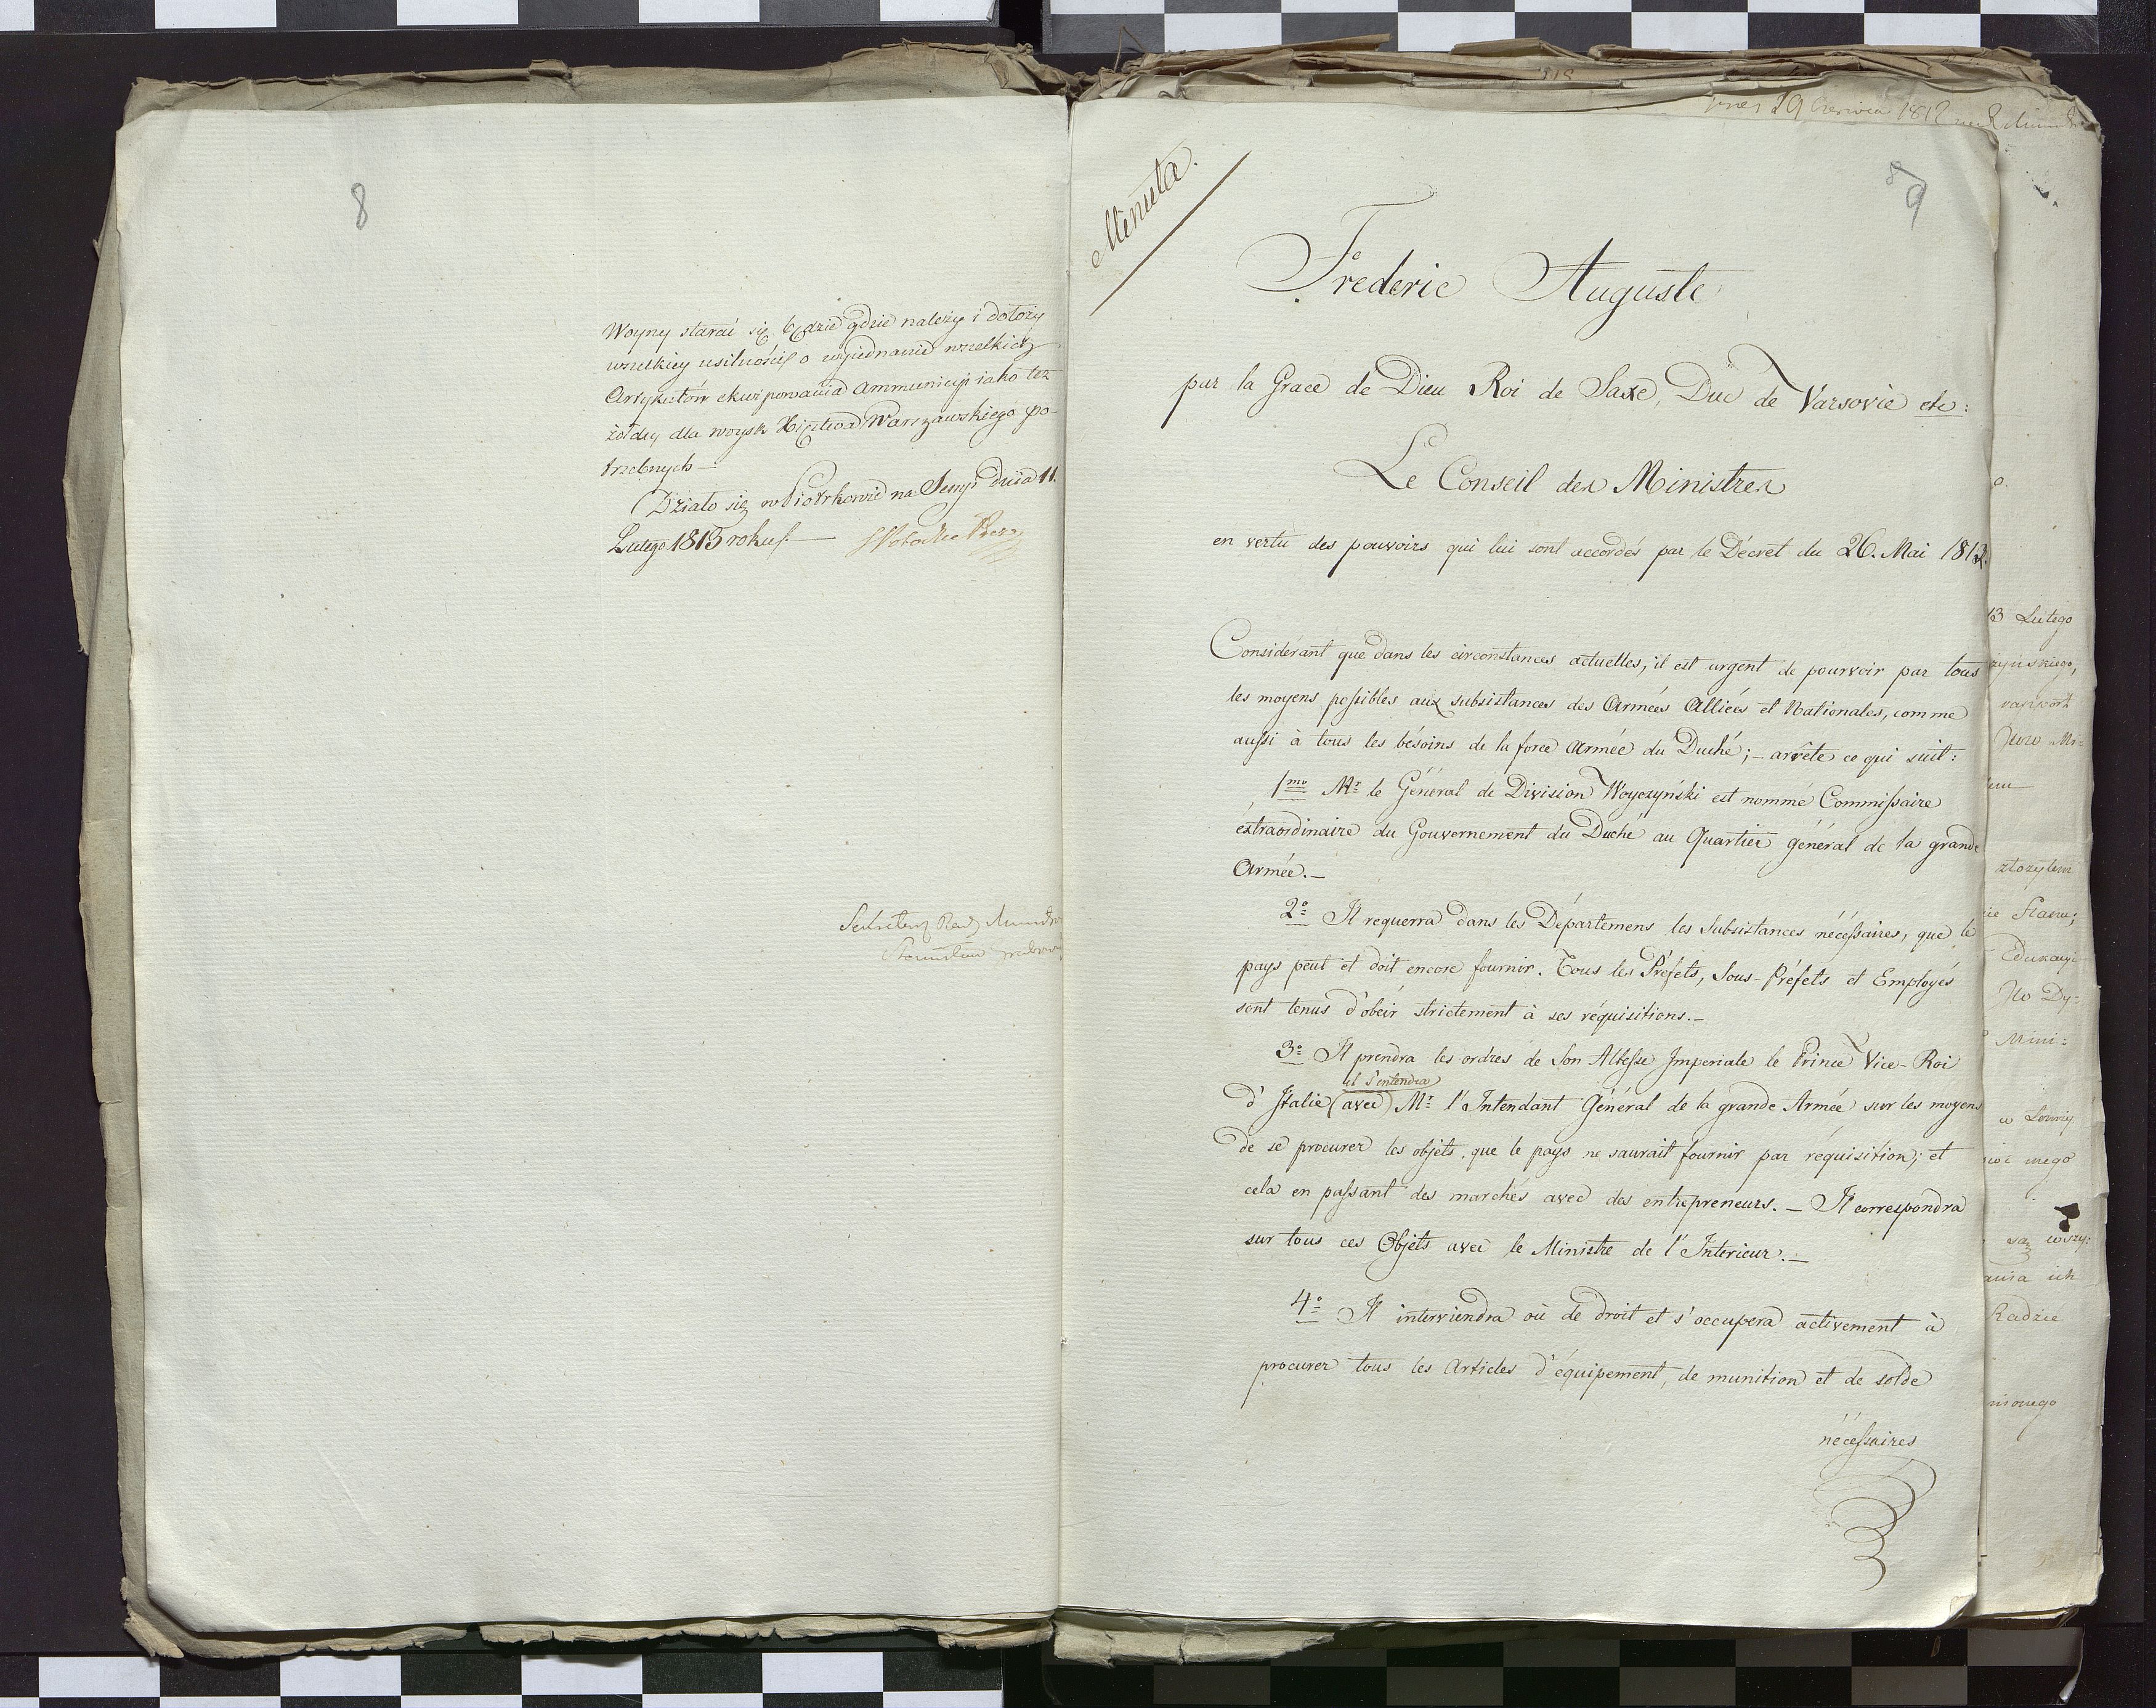 8
Woyny starać się będzie gdzie należy i dołoży
wszelkiey usilności o wyiednanie wszelkich
Artykułów ekwipowania Ammunicyi iako też
żołdu dla woysk Xięstwa Warszawskiego po-
trzebnych —
Działo się w Piotrkowie na Sessyi dnia 11.
Lutego 1813 roku. —
Sekretarz Rady
Minuta.
8
9
Frederic Auguste
par la Grace de Dieu Roi de Saxe, Duc de Varsovie etc:
Le Conseil des Ministres
en vertu des pouvoirs qui lui sont accordés par le Décret du 26. Mai 1812.
Considérant que dans les circonstances actuelles, il est urgent de pourvoir par tous
les moyens possibles aux subsistances des Armées Alliées et Nationales, comme
aussi à tous les bésoins de la force Armée du Duché; – arrête ce qui suit:
1mo Mr le Général de Division Woyczyński est nommé Commissaire
éxtraordinaire du Gouvernement du Duché au Quartier général de la grande
Armée. –
2o Il requerra dans les Départemens les Subsistances nécéssaires, que le
pays peut et doit encore fournir. Tous les Préfets, Sous-Préfets et Employés
sont tenus d'obéir strictement à ses réquisitions. –
3o Il prendra les ordres de Son Altesse Imperiale le Prince Vice-Roi
et s'entendra
d'Italie (avec) Mr l'Intendant Général de la grande Armée sur les moyens
de se procurer les objets, que le pays ne saurait fournir par réquisition; et
cela en passant des marchés avec des entrepreneurs. – Il correspondra
sur tous ces Objets avec le Ministre de l'Interieur. –
4o Il interviendra où de droit et s'occupera activement à
procurer tous les Articles d'équipement, de munition et de solde
nécéssaires
29 Czerwca 1812
13 Lutego
złożyłem
Mini=
ich
Radzie